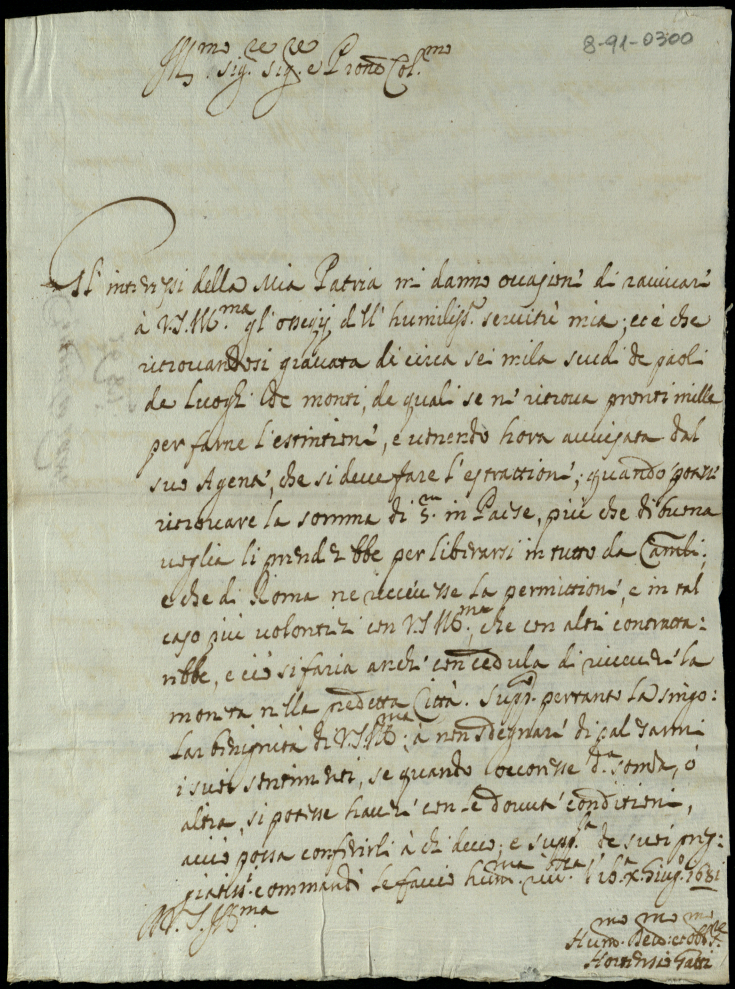 8-91-0300
Ill.mo sig.re sig.re e Pron Col.mo
Gl'interessi della Mia Patria mi danno occasione di ravivare
à V.S.Ill.ma gl'ossequij dell'humiliss. servitù mia; et è che
ritrovandosi gravata di circa sei mila scudi de paoli
de Luoghi de monti, de quali se ne ritrova pronti mille
per farne l'estintione, e venendo hora avvisata dal
suo Agente, che si deve fare l'estrattione; quando potesse
ritrovare la somma di 5.m in Paese, più che di buona
voglia li prenderebbe per liberarsi in tutto da Cambi;
e che di Roma ne ricevesse la permissione, e in tal
caso più volontieri con V.S.Ill.ma, che con altri contrattа:
rebbe, e ciò si faria anche con cedula di ricevere la
moneta nella predetta Città. Supp. pertanto la singo:
lar benignità di V.S.Ill.ma à non sdegnare di palesarmi
i suoi sentimenti, se quando occoresse d.a somma, ò
altra, si potesse havere con le dovute conditioni,
acciò possa conferirli à chi devo; e supp.la de suoi preg:
giatiss. commandi le faccio hum.ma riv.za li x Giug.o 1681
D V.S.Ill.ma
Hum.mo Dev.mo et obb.mo
Hortensio Gatti